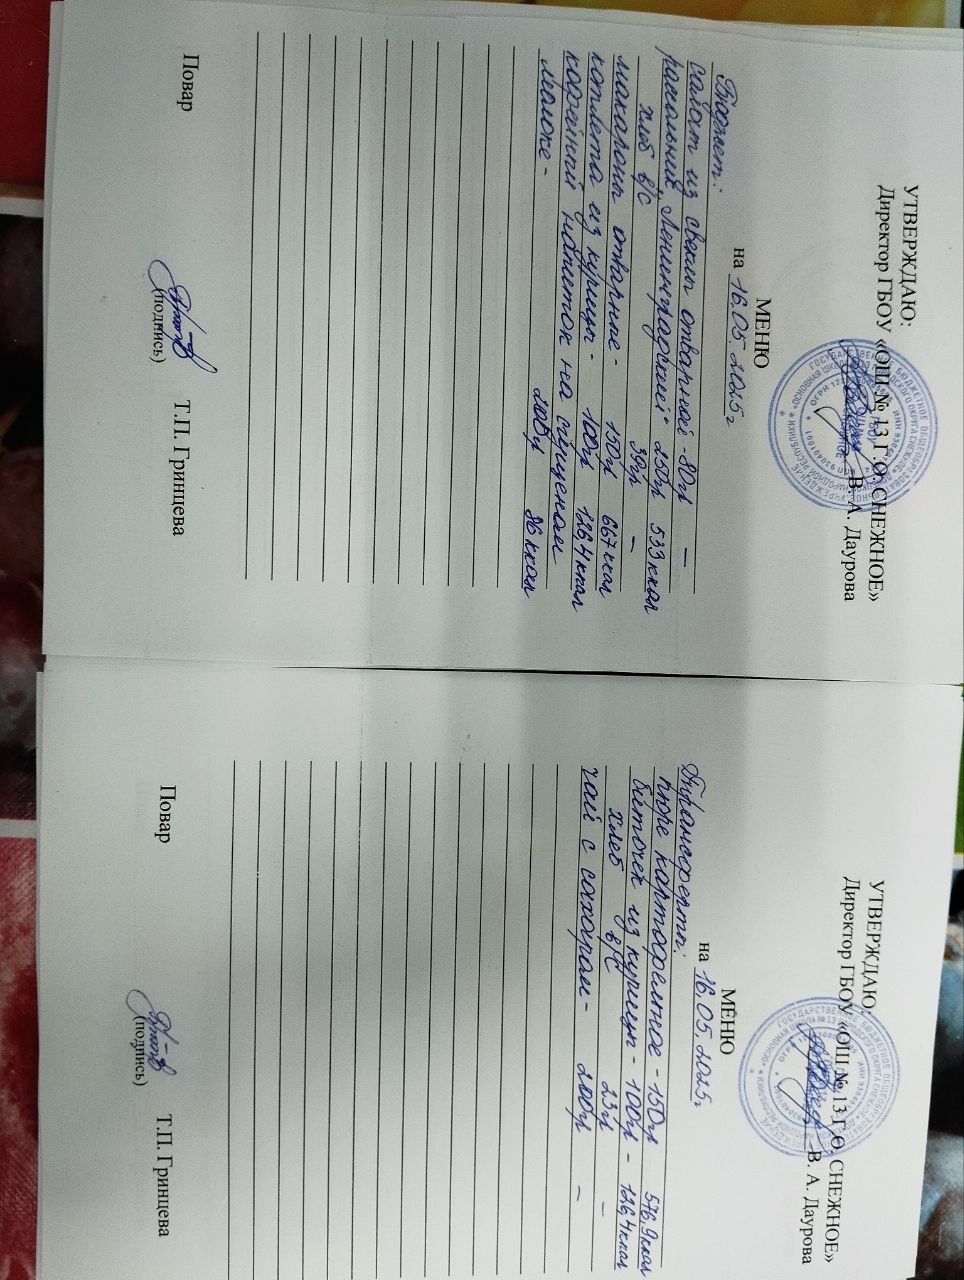 УТВЕРЖДАЮ:
Директор ГБОУ «ОШ № 13 Г.О. СНЕЖНОЕ»
В. А. Даурова
МЕНЮ
на 16.05.2025г
Бюджет:
салат из свеклы отварной - 80гр —
рассольник „Ленинградский" 250гр 533 ккал
хлеб в/с 39гр —
макароны отварные - 150гр 667 ккал
котлета из курицы - 100гр 126,4 ккал
кофейный напиток на сгущеном
молоке - 200гр 86 ккал
Повар
(подпись)
Т.П. Гринцева
УТВЕРЖДАЮ:
Директор ГБОУ «ОШ № 13 Г.О. СНЕЖНОЕ»
В. А. Даурова
МЕНЮ
на 16.05.2025г
Трансферты:
пюре картофельное - 150гр 576,9 ккал
биточек из курицы - 100гр - 126,4 ккал
хлеб в/с 23гр —
чай с сахаром - 200гр —
Повар
(подпись)
Т.П. Гринцева